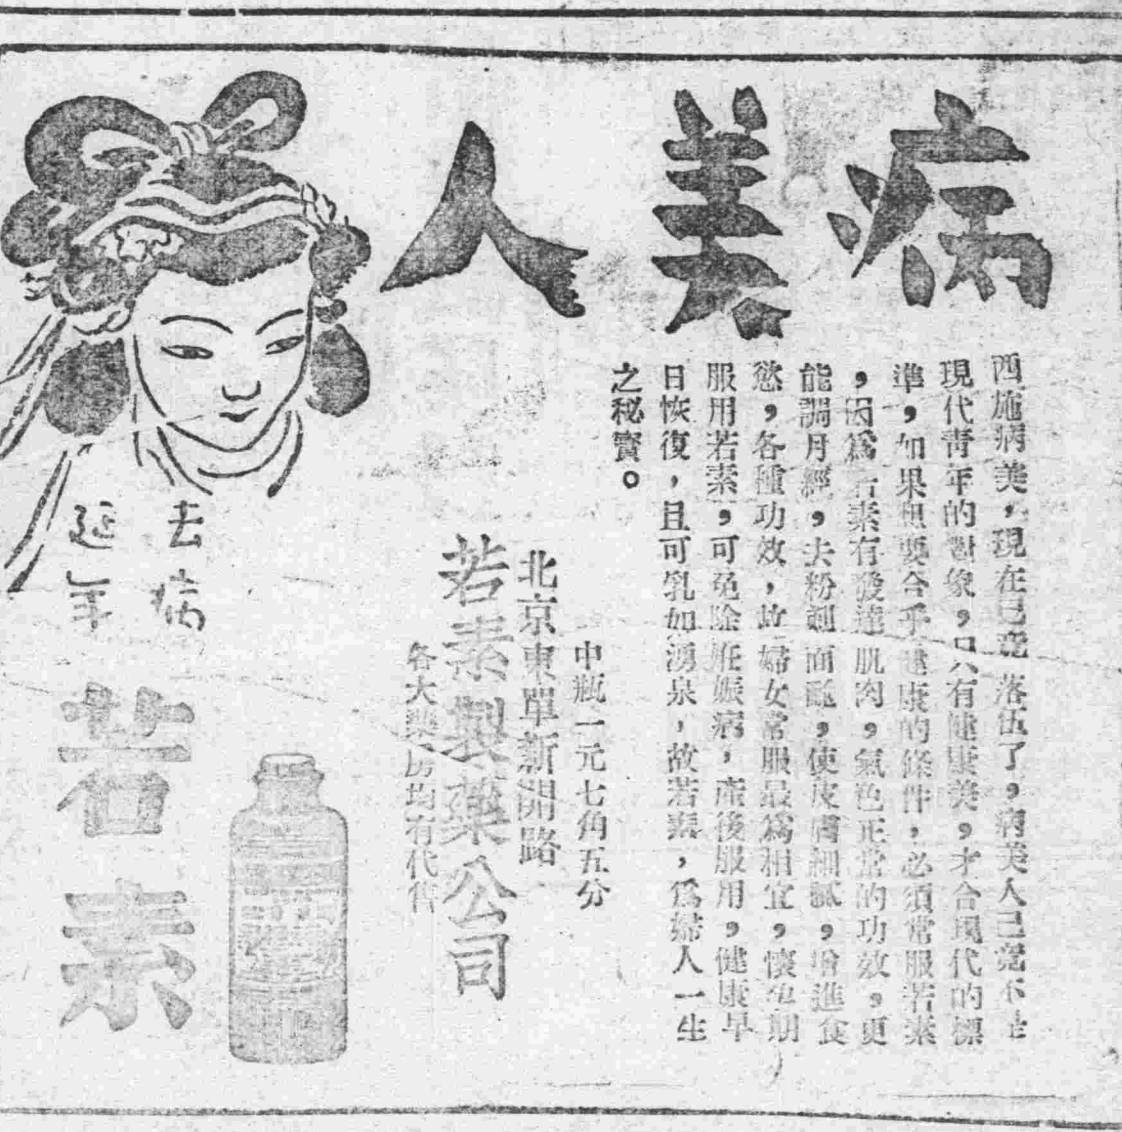 病美人
西施病美，現在已竟落伍了，病美人已竟不是
現代青年的對象，只有健康美，才合現代的標
準，如果想要合乎健康的條件，必須常服若素
，因爲若素有發達肌肉，氣色正常的功效，更
能調月經，去粉刺面皰，使皮膚細膩，增進食
慾，各種功效，故婦女常服最爲相宜，懷孕期
服用若素，可免除姙娠病，產後服用，健康早
日恢復，且可乳如湧泉，故若素，爲婦人一生
之秘寶。
中瓶一元七角五分
北京東單新開路
若素製藥公司
各大藥房均有代售
去病
延年
若素